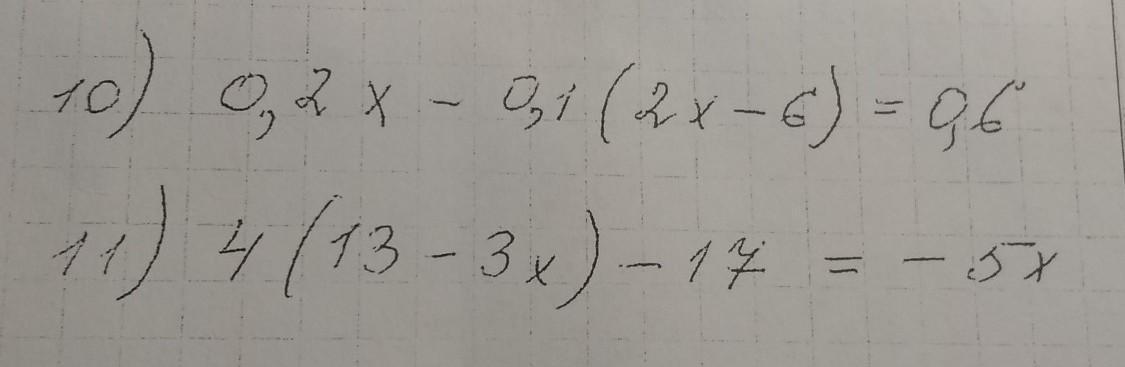 10) 0,2x - 0,1(2x - 6) = 0,6
11) 4(13 - 3x) - 17 = -5x